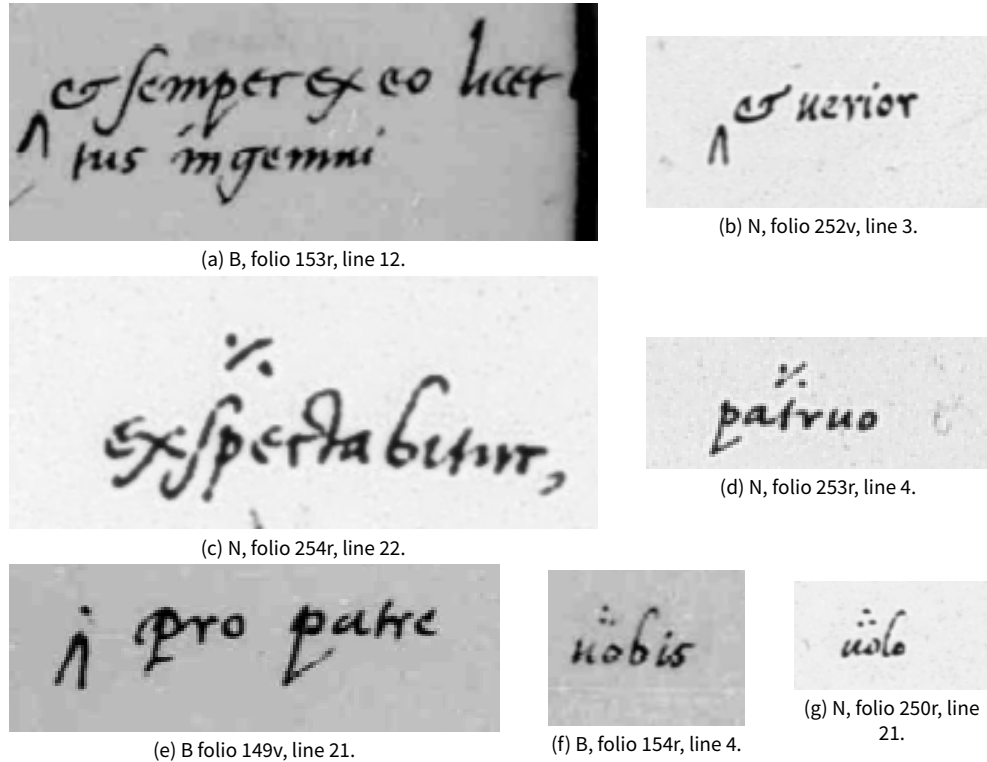 & semper ex eo licet
tus ingemni
(a) B, folio 153r, line 12.
& uerior
(b) N, folio 252v, line 3.
exspectabitur,
(c) N, folio 254r, line 22.
patruo
(d) N, folio 253r, line 4.
pro patre
(e) B folio 149v, line 21.
uobis
(f) B, folio 154r, line 4.
uolo
(g) N, folio 250r, line
21.